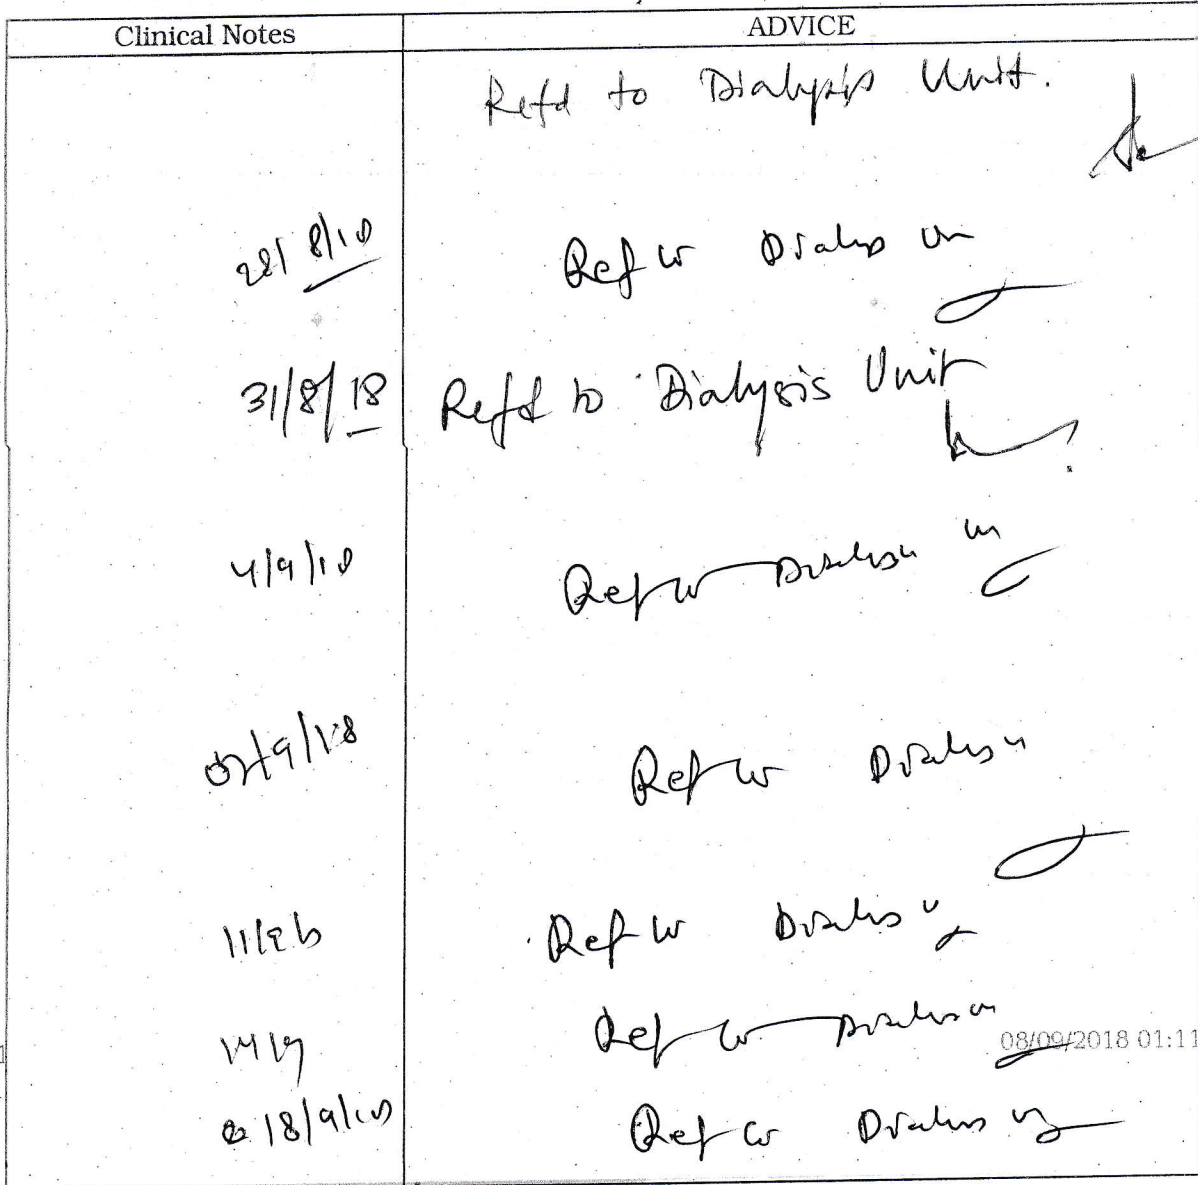 Clinical Notes ADVICE
Refd to Dialysis Unit.
28/8/18 Ref to Dialys un
31/8/18 Refd to Dialysis Unit
4/9/18 Ref to Dialysis un
07/9/18 Ref to Dialysis
Ref to Dialysis
14/9 Ref to Dialysis un
08/09/2018 01:11
18/9/18 Ref to Dialysis